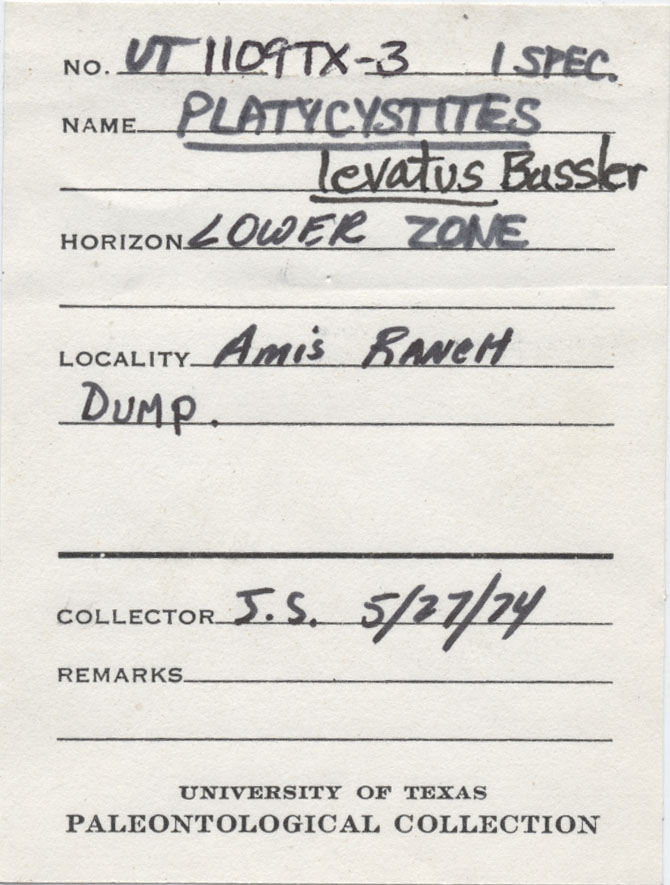 NO. UT 1109TX-3 1 SPEC.
NAME PLATYCYSTITES
levatus Bassler
HORIZON LOWER ZONE
LOCALITY Amis RANCH
DUMP.
COLLECTOR J.S. 5/27/74
REMARKS
UNIVERSITY OF TEXAS
PALEONTOLOGICAL COLLECTION